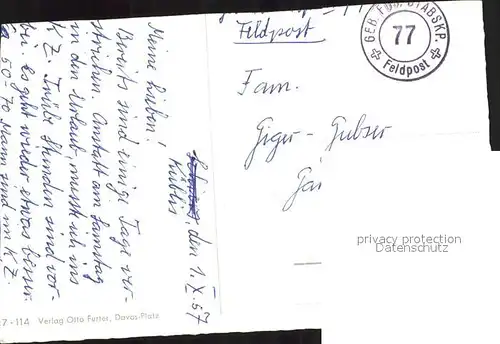 Feldpost
GEB. FÜS. STABSKP.
77
Feldpost
Fam.
Giger - Gubser
privacy protection
Datenschutz
Küblis, den 1. X. 57
Meine Lieben!
Bereits sind einige Tage ver-
strichen. Anstatt am Samstag
in den Urlaub, musst ich ins
K.Z. Trübe Stunden sind vor-
bei. es geht wieder etwas besser.
50-70 Mann sind im K.Z.
7-114 Verlag Otto Furter, Davos-Platz